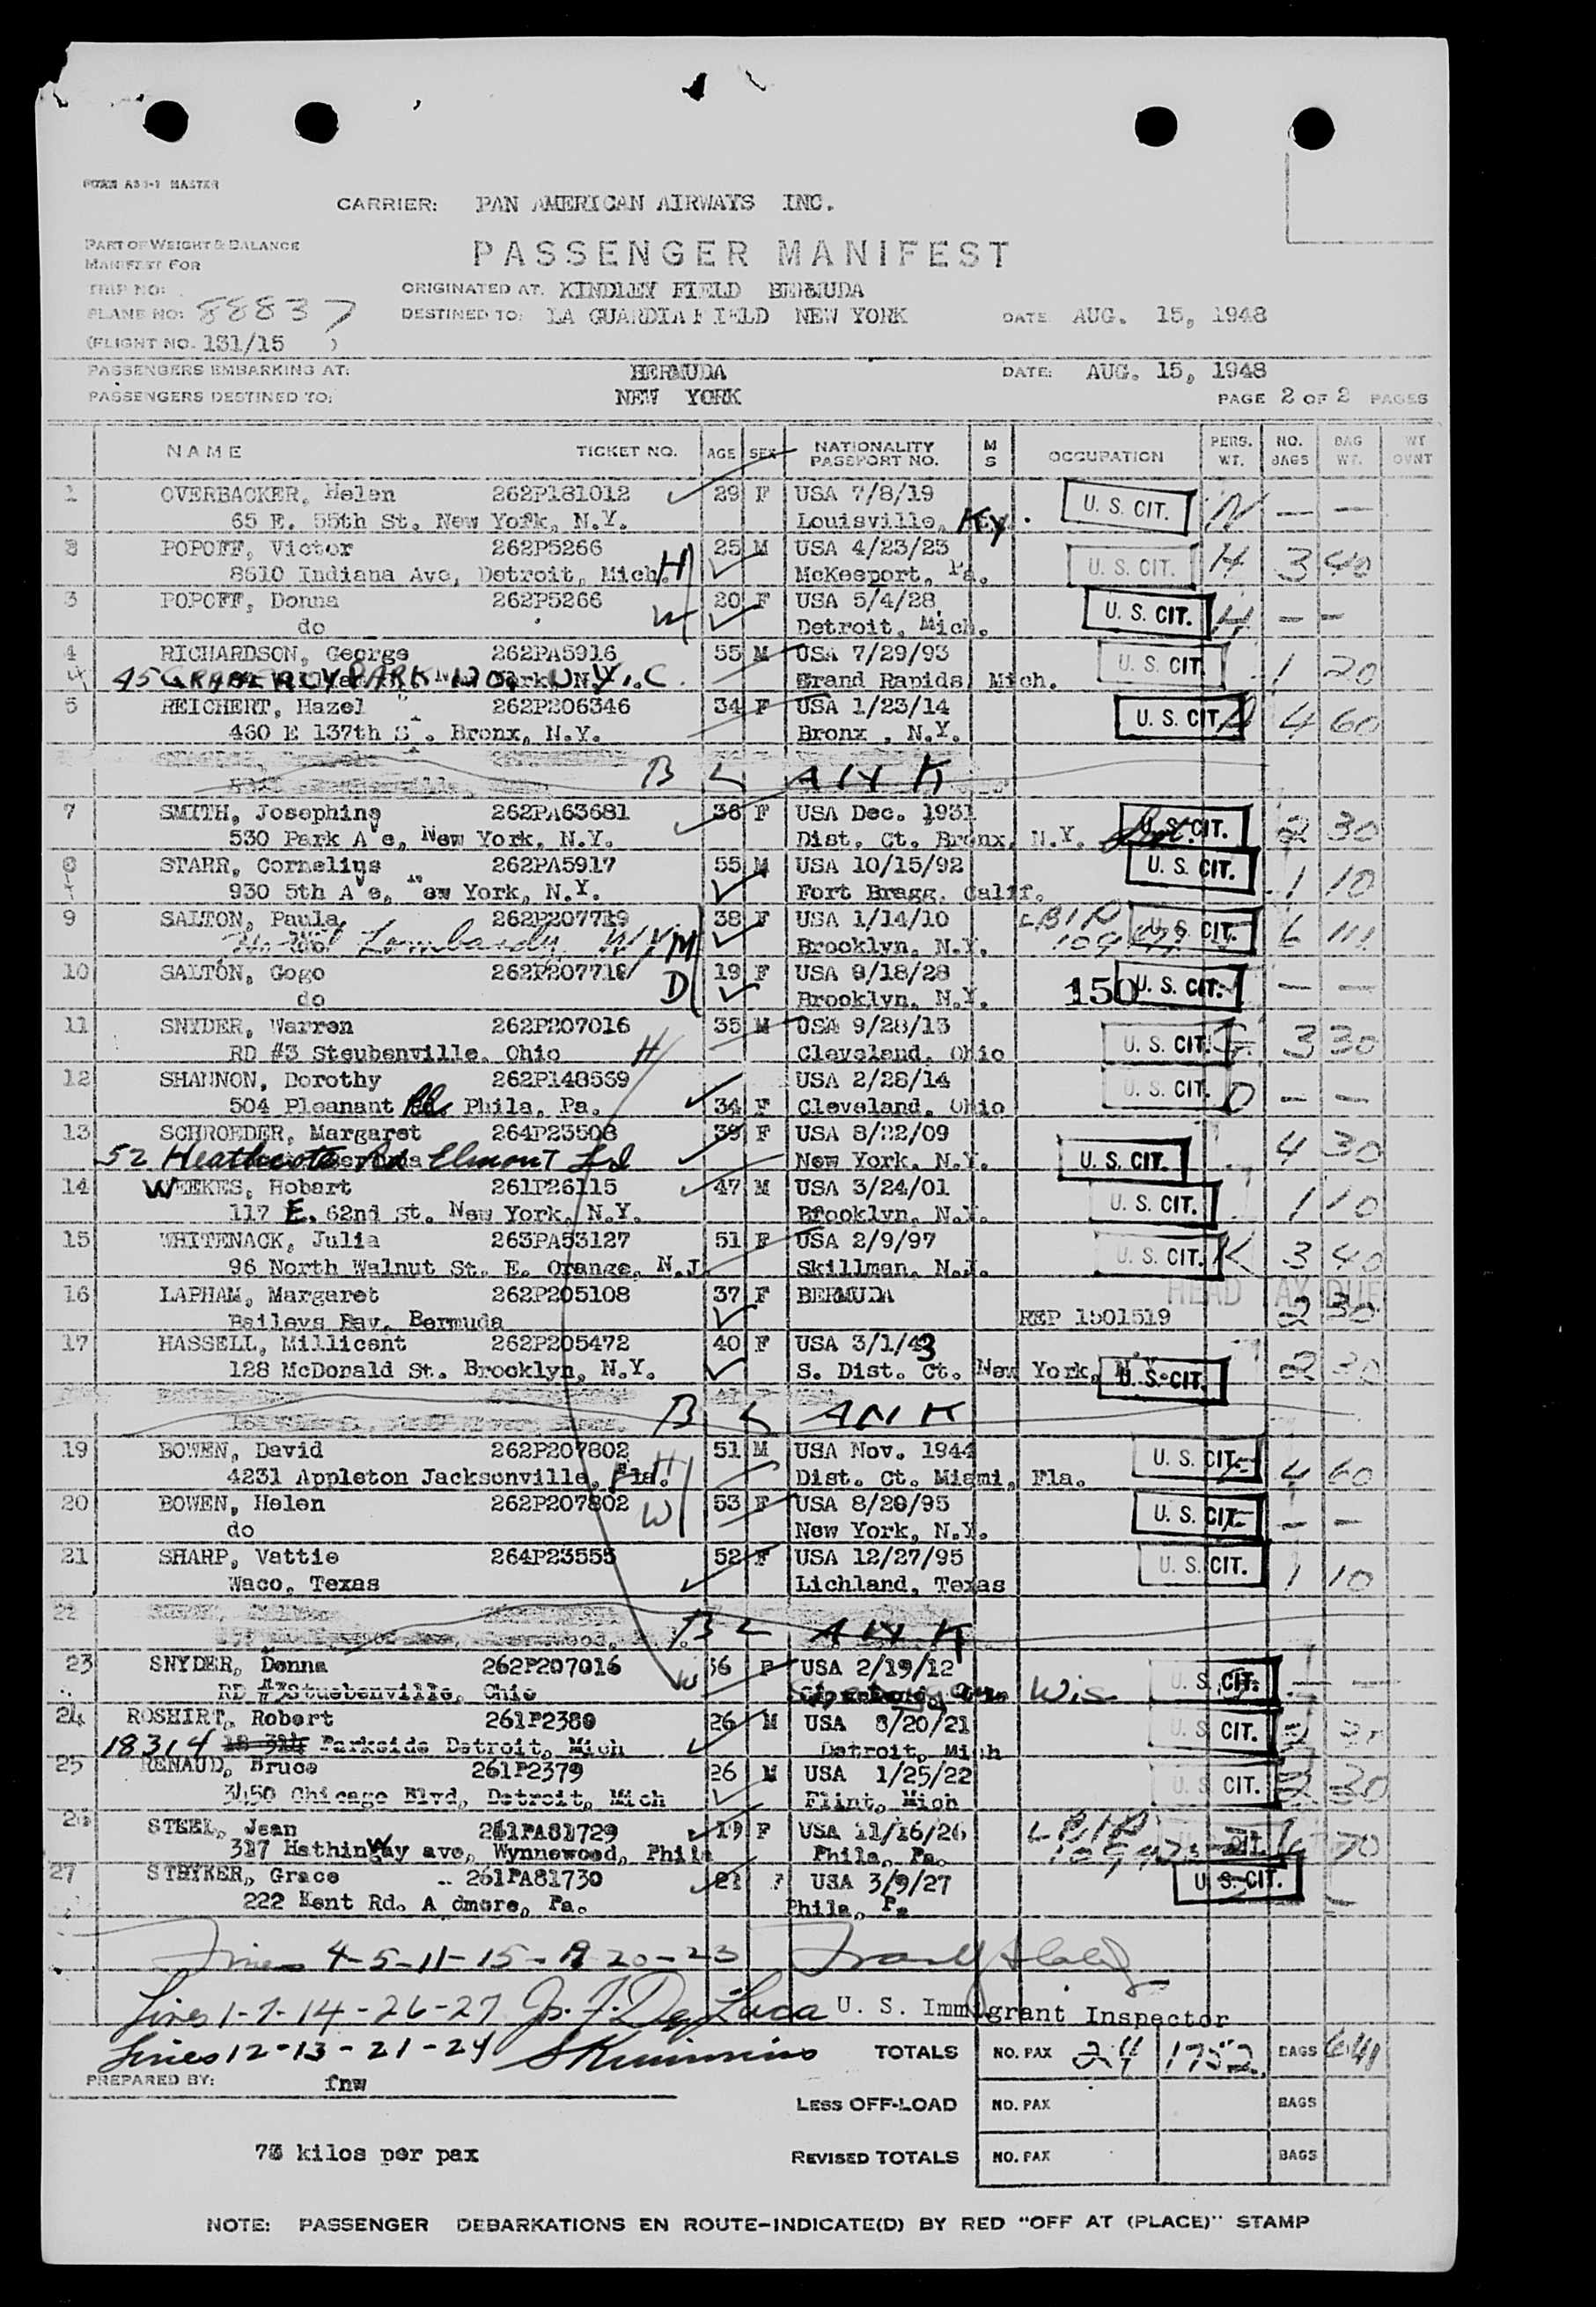 FORM AS3-1 MASTER
CARRIER: PAN AMERICAN AIRWAYS INC.
PART OF WEIGHT & BALANCE
MANIFEST FOR
PASSENGER MANIFEST
TRIP NO:
ORIGINATED AT. KINDLEY FIELD BERMUDA
PLANE NO: 88837
DESTINED TO: LA GUARDIA FIELD NEW YORK DATE AUG. 15, 1948
(FLIGHT NO. 131/15 )
PASSENGERS EMBARKING AT: BERMUDA DATE: AUG. 15, 1948
PASSENGERS DESTINED TO: NEW YORK PAGE 2 OF 2 PAGES
NAME TICKET NO. AGE SEX NATIONALITY PASSPORT NO. M S OCCUPATION PERS. WT. NO. BAGS BAG WT. WT OVNT
1 OVERBACKER, Helen 262P181012 29 F USA 7/8/19 U. S. CIT. N — —
65 E. 55th St. New York, N.Y. Louisville, Ky.
POPOFF, Victor 262P5266 25 M USA 4/23/23 U. S. CIT. H 3 40
8610 Indiana Ave, Detroit, Mich. H McKeesport, Pa.
3 POPOFF, Donna 262P5266 20 F USA 5/4/28 U. S. CIT. H — —
do W Detroit, Mich.
4 RICHARDSON, George 262PA5916 55 M USA 7/29/93 U. S. CIT. 1 20
45 GRAMERCY PARK NO. N.Y.C. Grand Rapids, Mich.
5 REICHERT, Hazel 262P206346 34 F USA 1/23/14 U. S. CIT. 4 60
460 E 137th St. Bronx, N.Y. Bronx , N.Y.
BLANK
7 SMITH, Josephine 262PA63681 36 F USA Dec. 1931 U. S. CIT. 2 30
530 Park Ave, New York, N.Y. Dist. Ct. Bronx, N.Y.
8 STARR, Cornelius 262PA5917 55 M USA 10/15/92 U. S. CIT. 1 10
930 5th Ave, New York, N.Y. Fort Bragg, Calif.
9 SALTON, Paula 262P207719 38 F USA 1/14/10 U. S. CIT. 6 111
Hotel Lombardy, NY M Brooklyn, N.Y.
10 SALTON, Gogo 262P207718 19 F USA 9/18/28 150 U. S. CIT. — —
do D Brooklyn, N.Y.
11 SNYDER, Warren 262P207016 35 M USA 9/28/13 U. S. CIT. G 3 30
RD #3 Steubenville, Ohio H Cleveland, Ohio
12 SHANNON, Dorothy 262P148569 USA 2/28/14 U. S. CIT. D — —
504 Pleanant Rd. Phila, Pa. 34 F Cleveland, Ohio
13 SCHROEDER, Margaret 264P23508 39 F USA 8/22/09 4 30
52 Heathcote Rd Elmont L.I New York, N.Y. U. S. CIT.
14 WEEKES, Hobart 261P26115 47 M USA 3/24/01 U. S. CIT. 1 10
117 E. 62nd St. New York, N.Y. Brooklyn, N.Y.
15 WHITENACK, Julia 263PA53127 51 F USA 2/9/97 U. S. CIT. K 3 40
96 North Walnut St. E. Orange, N.J. Skillman, N.J.
16 LAPHAM, Margaret 262P205108 37 F BERMUDA HEAD TAX DUE 2 30
Baileys Bay, Bermuda REP 1501519
17 HASSELL, Millicent 262P205472 40 F USA 3/1/43 2 30
128 McDonald St. Brooklyn, N.Y. S. Dist. Ct. New York, N.Y. U. S. CIT.
BLANK
19 BOWEN, David 262P207802 51 M USA Nov. 1944 U. S. CIT. 4 60
4231 Appleton Jacksonville, Fla. H Dist. Ct. Miami, Fla.
20 BOWEN, Helen 262P207802 53 F USA 8/20/95 U. S. CIT. — —
do W New York, N.Y.
21 SHARP, Vattie 264P23555 52 F USA 12/27/95 U. S. CIT. 1 10
Waco, Texas Lichland, Texas
22 BLANK
23 SNYDER, Donna 262P207016 W 36 F USA 2/19/12 U. S. CIT. — —
RD #3 Stuebenville, Ohio Wis
24 ROSHIRT, Robert 261P2380 26 M USA 8/20/21 U. S. CIT.
18314 Parkside Detroit, Mich Detroit, Mich
25 RENAUD, Bruce 261P2379 26 M USA 1/25/22 U. S. CIT. 2 30
3450 Chicago Blvd, Detroit, Mich Flint, Mich
26 STEEL, Jean 261PA81729 19 F USA 11/16/26 CIT. 70
317 Hathinway ave, Wynnewood, Phila Phila, Pa.
27 STRYKER, Grace 261PA81730 21 F USA 3/9/27 U. S. CIT.
222 Kent Rd. A dmore, Pa. Phila, Pa
Lines 4-5-11-15-19 20-23
Lines 1-7-14-26-27 De Luca U. S. Immigrant Inspector
Lines 12-13-21-24
TOTALS NO. PAX 24 1752 BAGS 641
PREPARED BY: fnw
LESS OFF-LOAD NO. PAX BAGS
78 kilos per pax
REVISED TOTALS NO. PAX BAGS
NOTE: PASSENGER DEBARKATIONS EN ROUTE-INDICATE(D) BY RED "OFF AT (PLACE)" STAMP